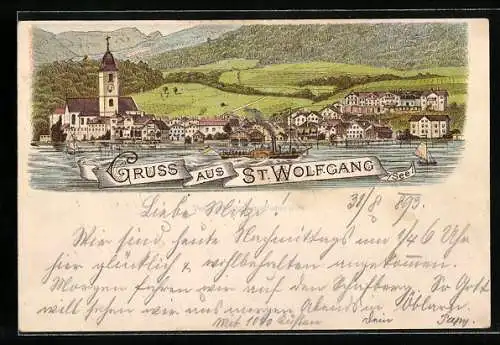 GRUSS AUS ST. WOLFGANG
/See/
Liebe Mitzi! 31/8 893.
Wir sind heute Nachmittags um 1/4 6 Uhr
hier glücklich & wohlbehalten angekommen.
Morgen fahren wir auf den Schafberg. So Gott
will sehen wir uns morgen Abends in Öblarn.
Mit 1000 Küssen Dein Papy.